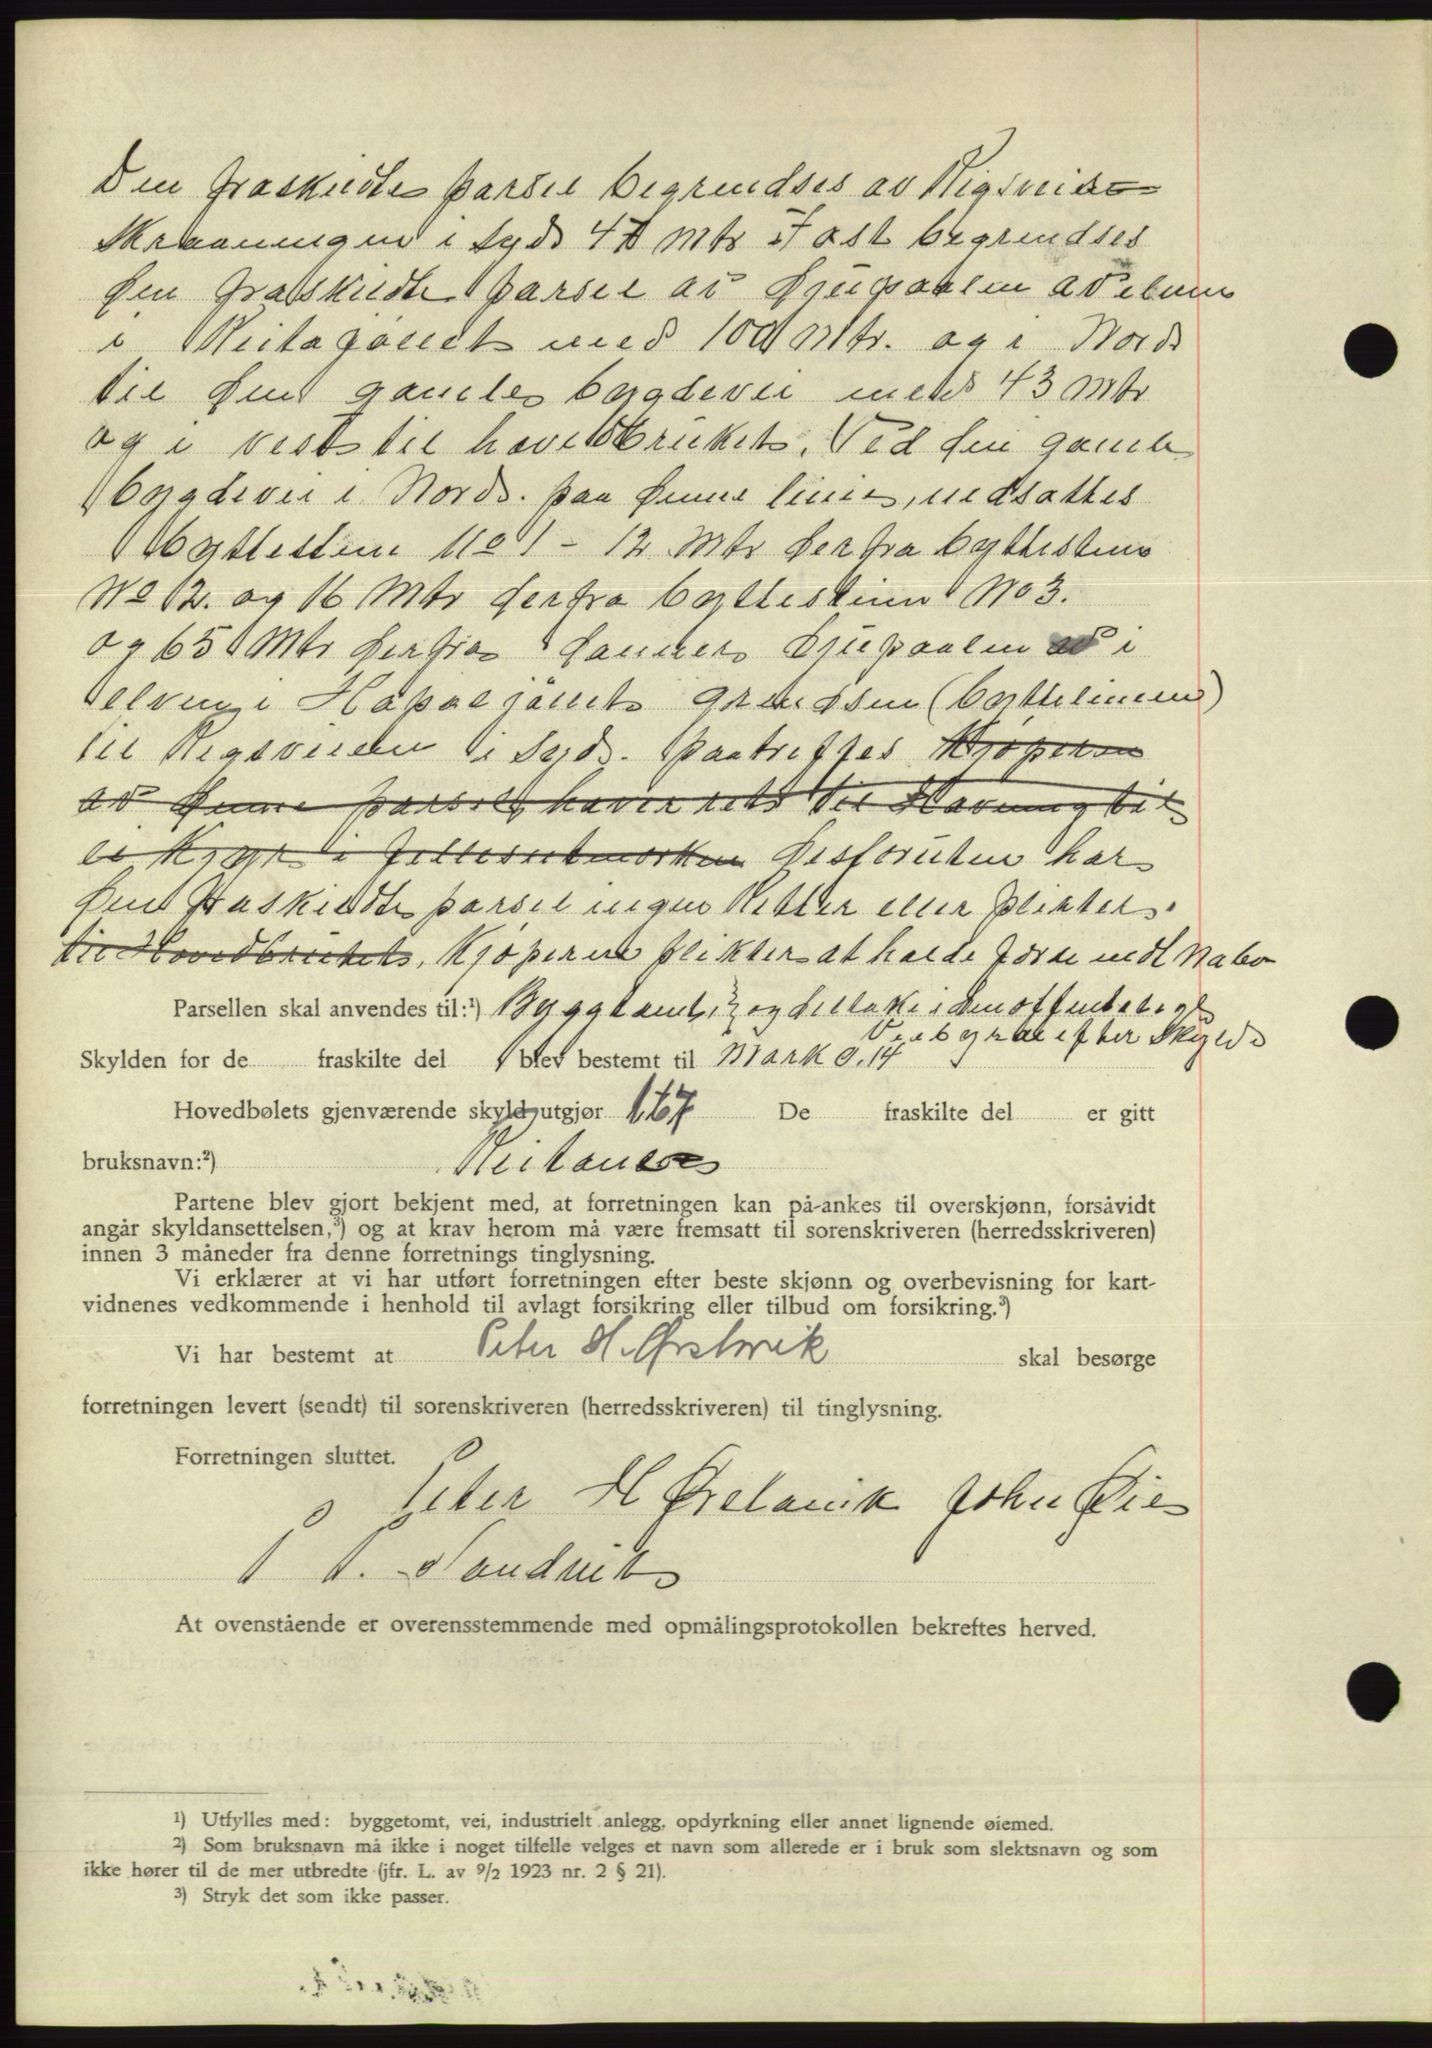 Den fraskildte parsel begrendses av Rigsveisc
Skraaningen i Syd 47 Mtr I øst begrendses
den fraskildte parsel av Djupaalen av elven
i med 100 Mtr. og i Nord
til den gamle bygdevei med 43 Mtr
og i vest til hovedbruket. Ved den gamle
bygdevei i Nord. paa denne linie, nedsattes
byttesten No 1 - 12 Mtr derfra byttesten
No 2. og 16 Mtr derfra byttesten No 3.
og 65 Mtr derfra danner Djupaalen av i
elven i grendsen (byttelinien)
til Rigsveien i Syd. paatreffes Kjøperen
av denne parsel haver ret til Havning til
ei Kyr i fellesutmorken Desforuten har
den fraskildte parsel ingen Retter eller plikter
til Hovedbruket. Kjøperen plikter at holde gjerde mot Nabo
Parsellen skal anvendes til:¹) Byggtomt, og deltake i den offentelige
Veibyrde efter Skyld
Skylden for de fraskilte del blev bestemt til Mark 0.14
Hovedbølets gjenværende skyld utgjør 1.67 De fraskilte del er gitt
bruksnavn:²)
Partene blev gjort bekjent med, at forretningen kan på-ankes til overskjønn, forsåvidt
angår skyldansettelsen,³) og at krav herom må være fremsatt til sorenskriveren (herredsskriveren)
innen 3 måneder fra denne forretnings tinglysning.
Vi erklærer at vi har utført forretningen efter beste skjønn og overbevisning for kart-
vidnenes vedkommende i henhold til avlagt forsikring eller tilbud om forsikring.³)
Vi har bestemt at Peter H. Ørstavik skal besørge
forretningen levert (sendt) til sorenskriveren (herredsskriveren) til tinglysning.
Forretningen sluttet.
Peter H Ørstavik John Øie
P P. Sandvik
At ovenstående er overensstemmende med opmålingsprotokollen bekreftes herved.
¹) Utfylles med: byggetomt, vei, industrielt anlegg, opdyrkning eller annet lignende øiemed.
²) Som bruksnavn må ikke i noget tilfelle velges et navn som allerede er i bruk som slektsnavn og som
ikke hører til de mer utbredte (jfr. L. av 9/2 1923 nr. 2 § 21).
³) Stryk det som ikke passer.